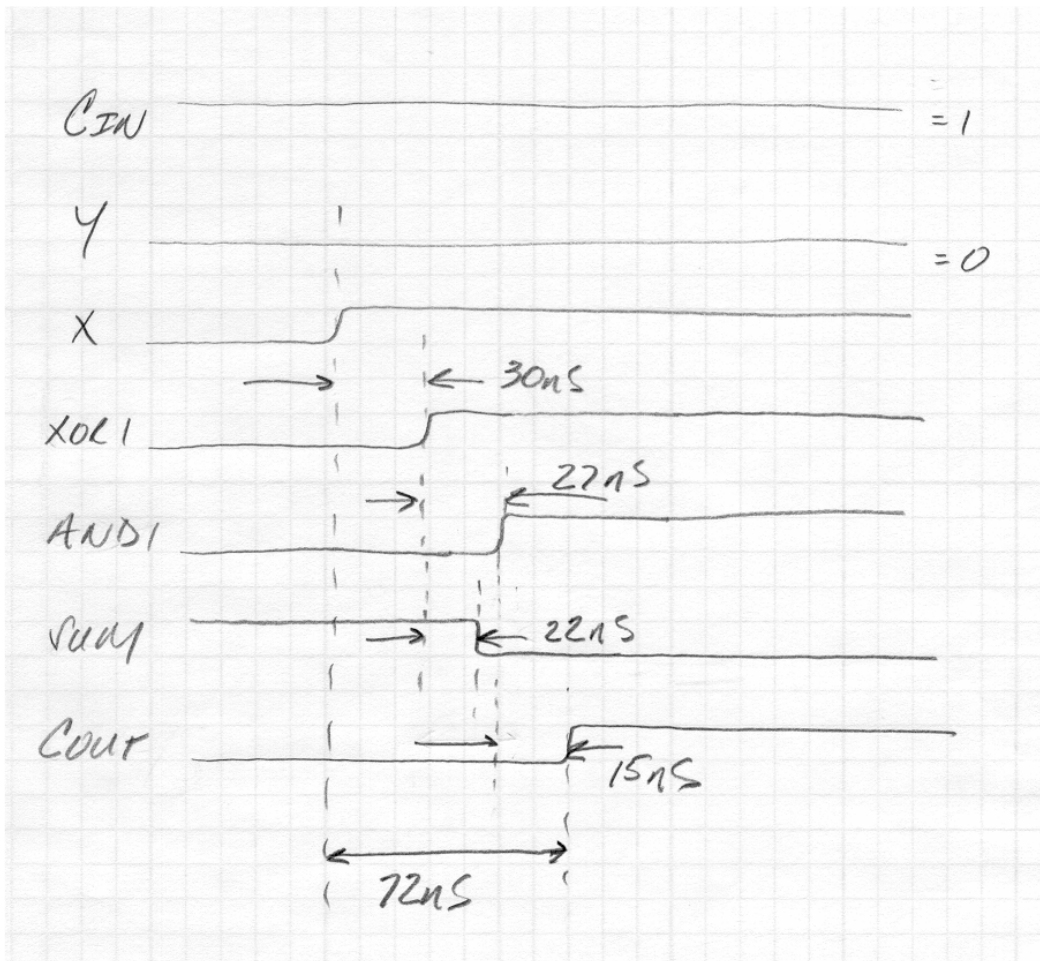 CIN = 1
Y = 0
X
30nS
XOR1
27nS
AND1
SUM 22nS
COUT
15nS
72nS